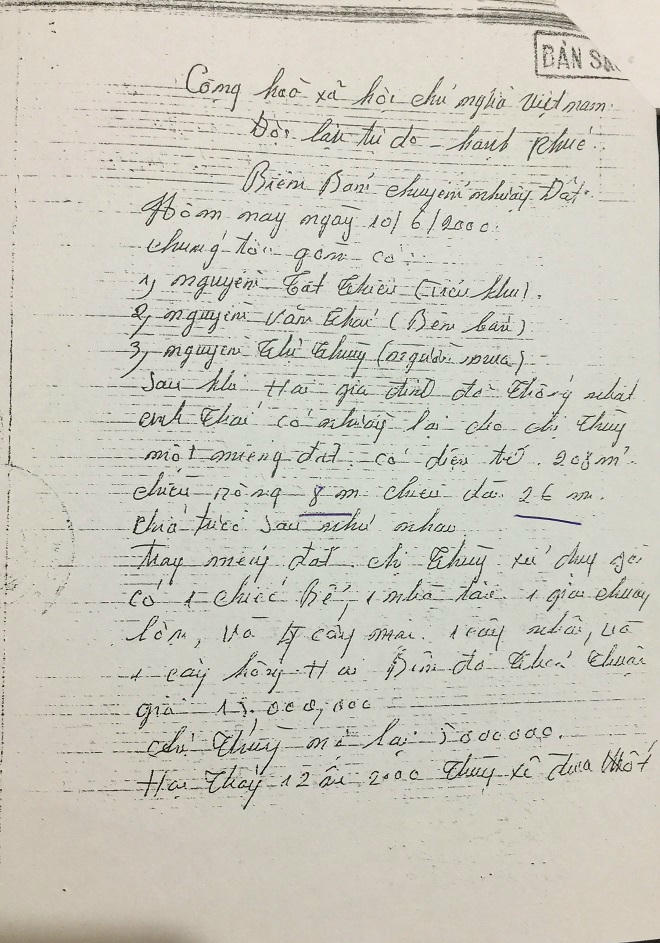 BẢN SA
Cộng hoà xã hội chủ nghĩa Việt nam
Độc lập tự do - hạnh phúc
Biên Bản chuyển nhượng Đất
Hôm nay ngày 10/6/2000
chúng tôi gồm có:
1, nguyễn Tất Thiều (Tiểu khu).
2, nguyễn Văn Thái (Bên bán)
3, nguyễn Thị Thuỷ (người mua)
Sau khi Hai gia đình đã thống nhất
anh Thái có nhượng lại cho chị Thuỷ
một miếng đất có diện tí 208 m²
chiều rộng 8 m chiều dà 26 m.
phía trước sau như nhau
Nay miếng đất chị Thuỷ sử dụng
có 1 chiếc Bể, 1 nhà 1 gian chuồng
lợn, và 4 cây mai 1 cây nhãn, và
1 cây hồng Hai Bên đã thoả thuận
giá 15.000,000
chị Thuỷ nợ lại 5000000.
Hai Tháng 12 2000 Thuỷ sẽ đưa Nốt